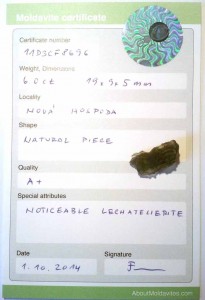 Moldavite certificate
Certificate number
11D3CF8696
Weight, Dimensions
6 ct 19, 9, 5 mm
Locality
NOVÁ HOSPODA
Shape
NATURAL PIECE
Quality
A+
Special attributes
NOTICEABLE LECHATELIERITE
Date Signature
1.10.2014
AboutMoldavites.com